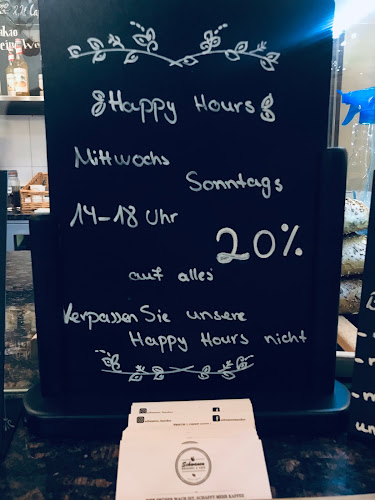 Happy Hours
Mittwochs
Sonntags
14-18 Uhr
20%
auf alles
Verpassen Sie unsere
Happy Hours nicht
Schwanen